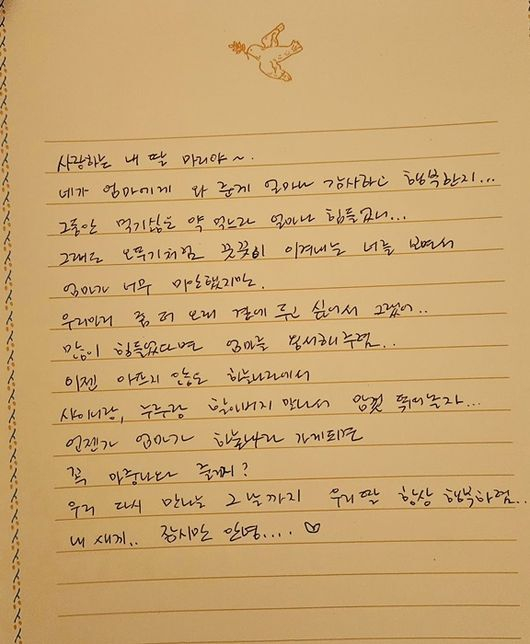 사랑하는 내 딸 마리야~.
네가 엄마에게 와 준게 얼마나 감사하고 행복한지...
그동안 먹기싫은 약 먹느라 얼마나 힘들었니...
그래도 오뚜기처럼 꿋꿋이 이겨내는 너를 보면서
엄마가 너무 미안했지만.
우리마리 좀 더 오래 곁에 두고 싶어서 그랬어..
많이 힘들었다면 엄마를 용서해주렴..
이젠 아프지 않은 하늘나라에서
샤이니랑, 누루랑 할아버지 만나서 맘껏 뛰어놀자...
언젠가 엄마가 하늘나라 가게되면
꼭 마중나와 줄꺼지?
우리 다시 만나는 그 날까지 우리 딸 항상 행복하렴..
내 새끼.. 잠시만 안녕.... ♡